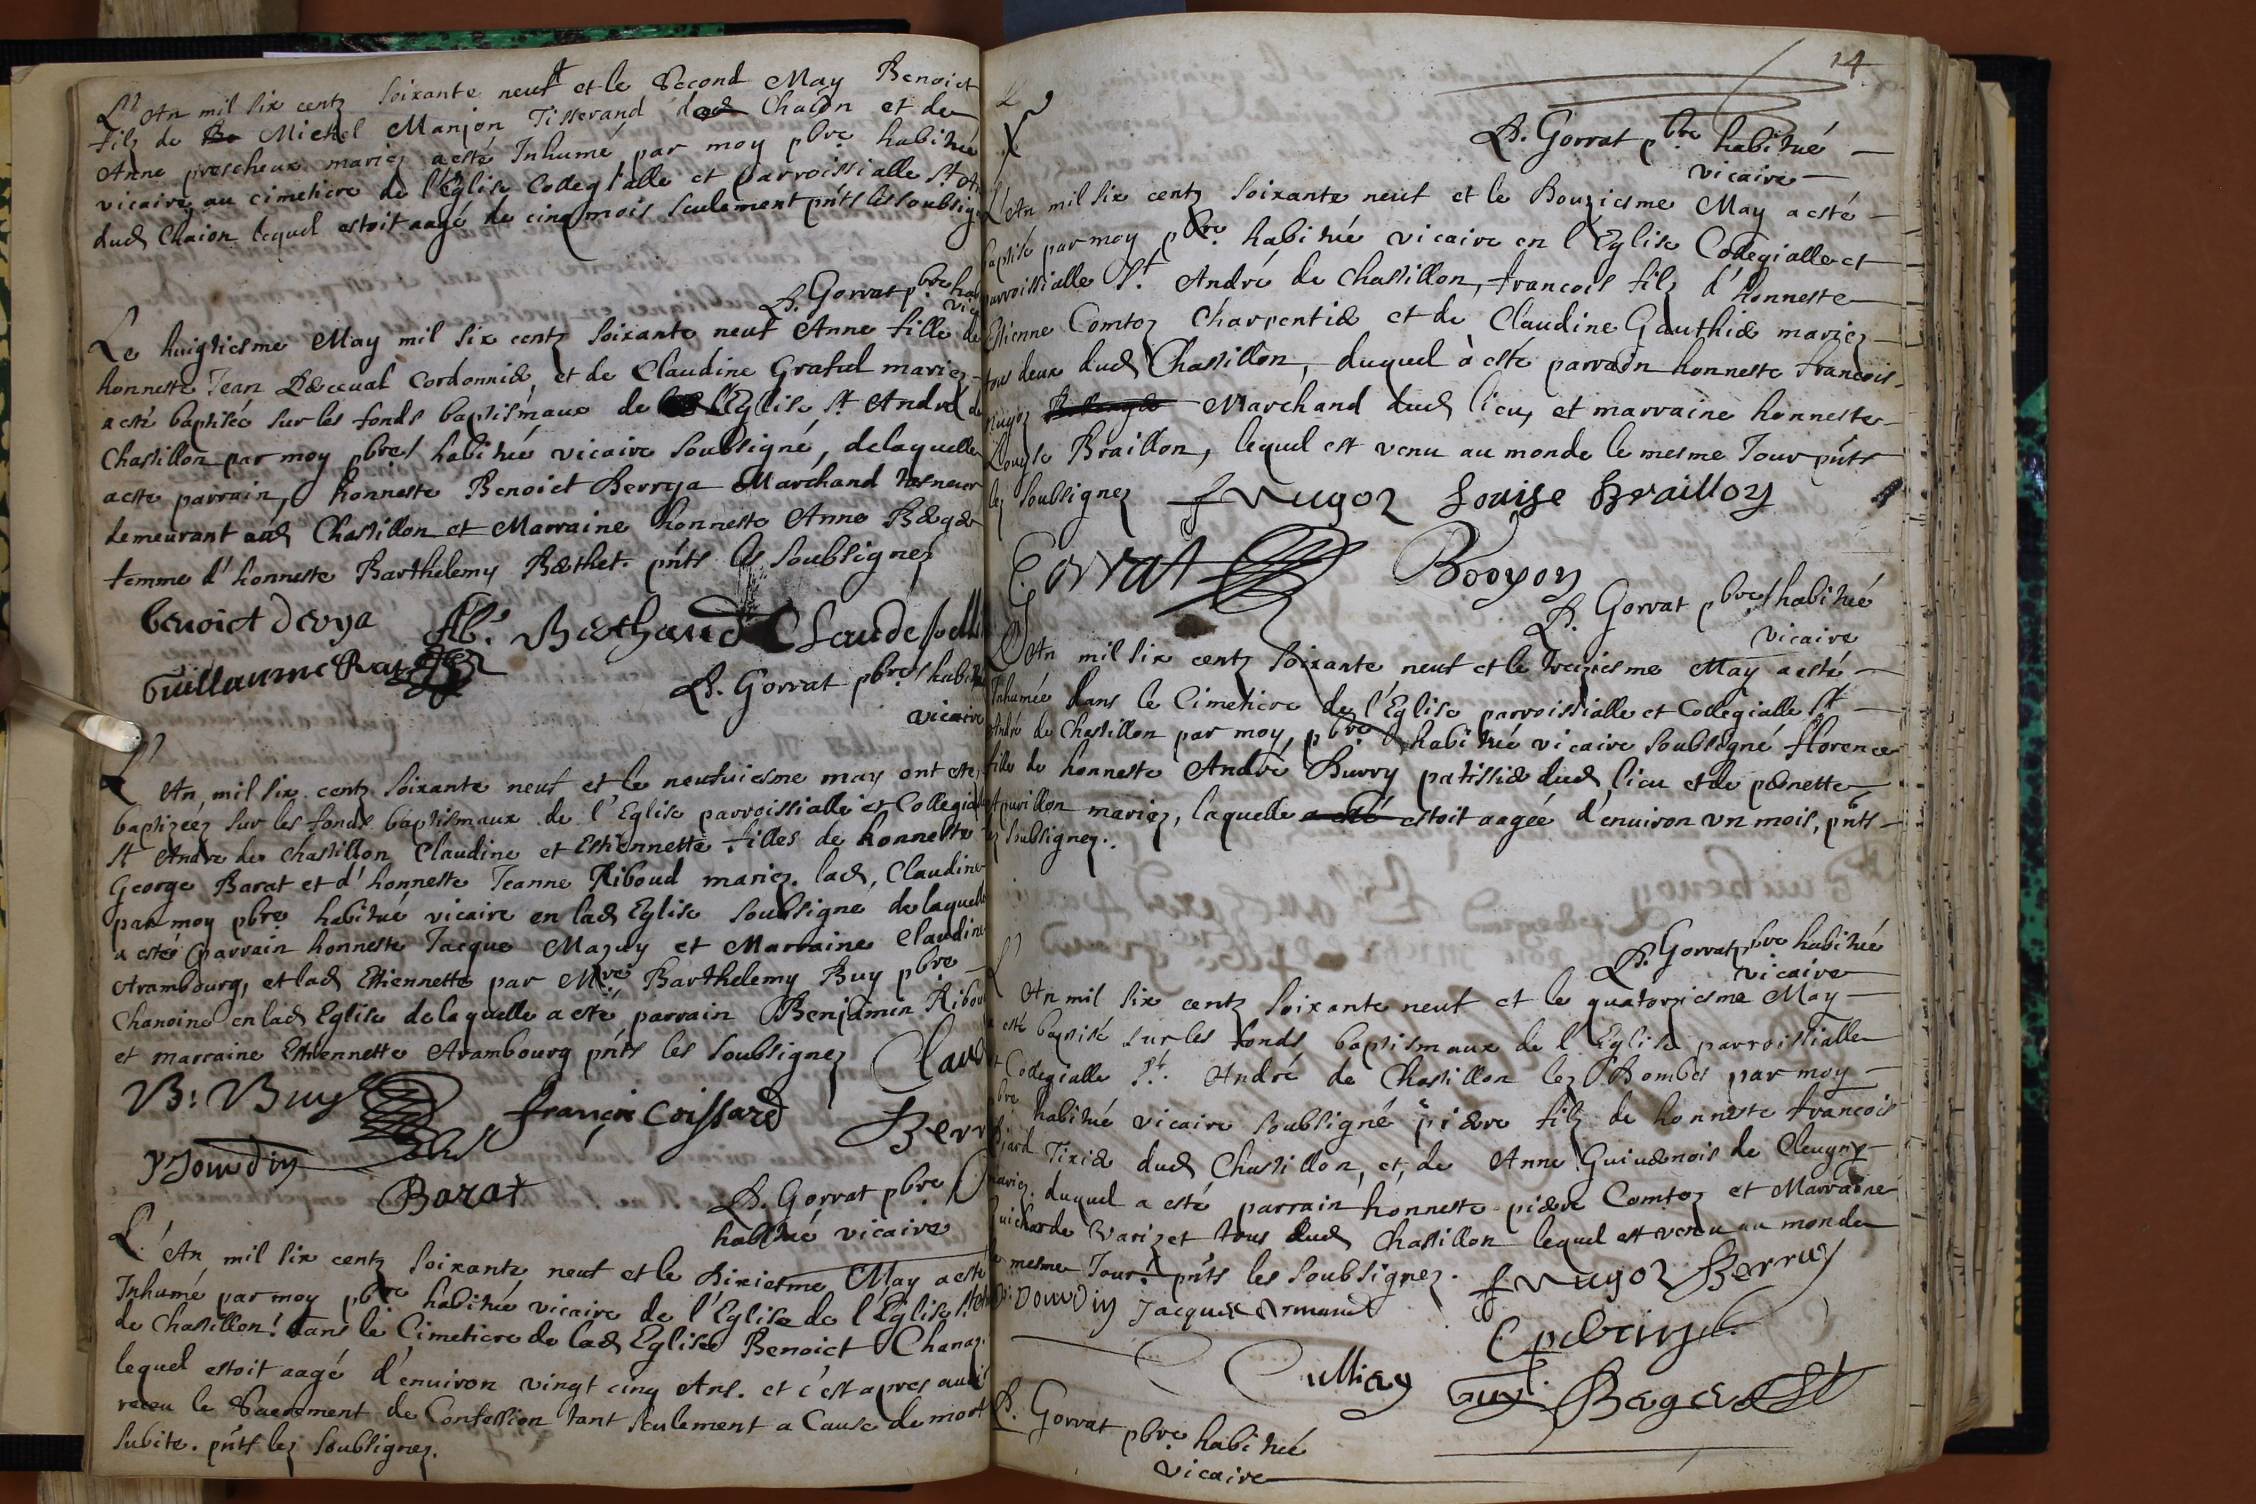 L'An mil six centz soixante neuf et le Second May Benoict
filz de Michel Manjon Tisserand dud Chalon et de
Anne prescheux mariez a esté Inhumé par moy pbre habitué
vicaire au cimetiere de l'Eglise Collegialle et parroissialle St An
dud Chalon lequel estoit aagé de cinq mois seulement pnts les soubsigne
B. Gorrat pbre hab
vic
Le huigtiesme May mil six centz soixante neuf Anne fille de
honneste Jean Cordonnier, et de Claudine Graful mariez
a esté baptisée sur les fonds baptismaux de l'Eglise St André de
Chastillon par moy pbre habitué vicaire soubsigné, de laquelle
a esté parrain, honneste Benoict Derrya Marchand
demeurant aud Chastillon et Marraine honneste Anne
femme d'honneste Barthelemy Berthet. pnts les soubsignez
benoict derya Berthaud Claude
Guillaume Rat
B. Gorrat pbre habitué
vicaire
L'An mil six centz soixante neuf et le neufuiesme may ont esté
baptizeez sur les fonds baptismaux de l'Eglise parroissialle et Collegialle
St André de Chastillon Claudine et Estiennette filles de honneste
George Barat et d'honneste Jeanne Riboud mariez. lad, Claudine
par moy pbre habitué vicaire en lad Eglise soubsigné de laquelle
a esté parrain honneste Jacque Mazuy et Marraine Claudine
Arambourg, et lad Estiennette par Mre Barthelemy Buy pbre
Chanoine en lad Eglise de laquelle a esté parrain Benjamin Ribou
et marraine Estiennette Arambourg pnts les soubsignez Claud
B: Buy francois Coissard Berr
Jourdin
Barat
B. Gorrat pbre
habitué vicaire
L'An mil six centz soixante neuf et le dixiesme May a esté
Inhumé par moy pbre habitué vicaire de l'Eglise de l'Eglise St
de Chastillon dans le Cimetiere de lad Eglise Benoict Chana
lequel estoit aagé d'enuiron vingt cinq Ans. et c'est apres
receu le Sacrement de Confession tant seulement a Cause de mort
subite. pnts lez soubsignez.
14
B. Gorrat pbre habitué
vicaire
L'An mil six centz soixante neuf et le Douziesme May a esté
baptisé par moy pbre habitué vicaire en l'Eglise Collegialle et
parroissialle St André de Chastillon, francois filz d'honneste
Estienne Comtoz Charpentier et de Claudine Gauthier mariez
tous deux dud Chastillon, duquel à esté parrain honneste francois
Nugoz Marchand dud lieu, et marraine honneste
Louyse Braillon, lequel est venu au monde le mesme Jour pnts
les soubsignez f Nugoz Louise Braillon
Gorrat Booyon
B. Gorrat pbre habitué
vicaire
L'An mil six centz soixante neuf et le treiziesme May a esté
Inhumée dans le Cimetiere de l'Eglise parroissialle et Collegialle St
André de Chastillon par moy, pbre habitué vicaire soubsigné florence
fille de honneste André Burry patissier dud, lieu et de pernette
Apuvillon mariez, laquelle a esté estoit aagée d'enuiron vn mois, pnts
les soubsignez.
B. Gorrat pbre habitué
vicaire
L'An mil six centz soixante neuf et le quatorziesme May
a esté baptisé sur les fonds baptismaux de l'Eglise parroissialle
et Collegialle St André de Chastillon lez Dombes par moy
pbre habitué vicaire soubsigné pierre filz de honneste francois
Tixier dud Chastillon, et, de Anne Guiudenois de Cleugny
mariez. duquel a esté parrain honneste pierre Comtoz et Marraine
Guicharde Varizet tous dud Chastillon lequel est venu au monde
le mesme Jour. pnts les soubsignez. f Nugoz Berruy
Dourdin Jacques Armand
Cullieu Guy. Bager
B. Gorrat pbre habitué
vicaire